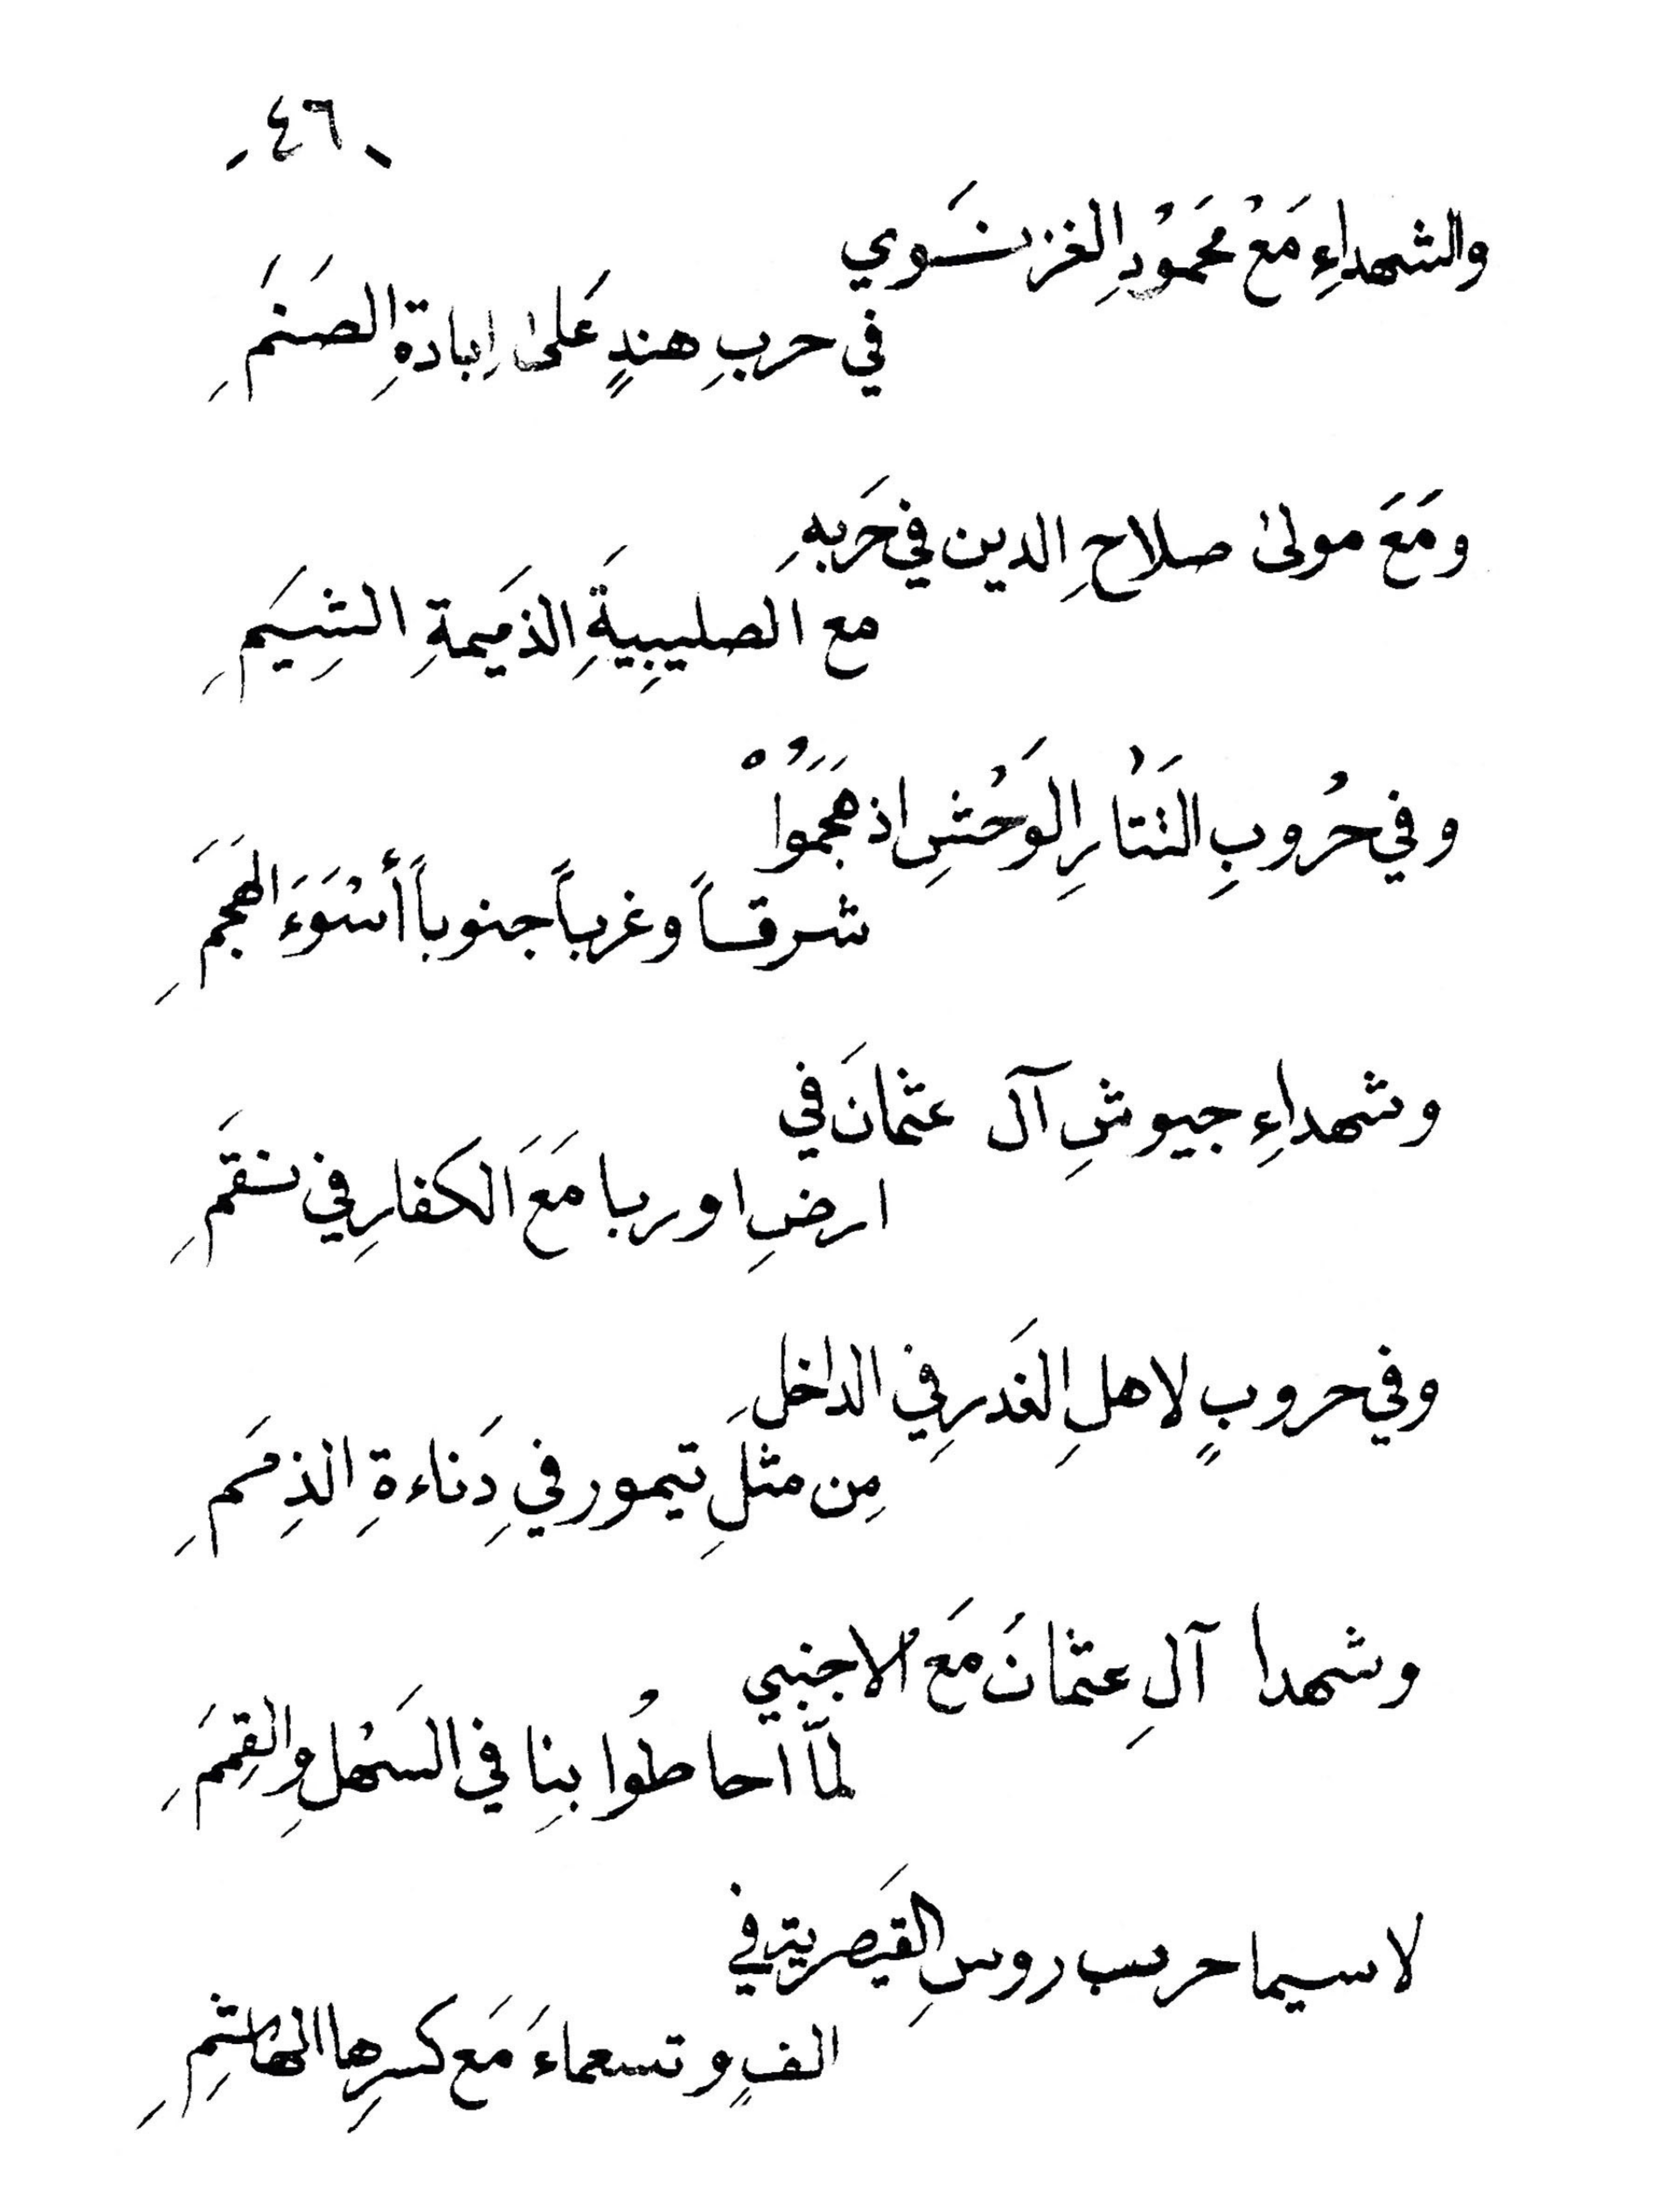 ـ ٤٦ ـ
والشهداءِ مَعْ محَموْدِ الغزنَسوي
في حربِ هندٍ عَلىٰ اِبادةِ الصَنَمِ
ومَعَ مولىٰ صلاحِ الدين في حَربهِ
مع الصليبِيَةِ الذَميمةِ الشِيَمِ
وفي حُروبِ التَتارِ الوَحْشِ اذ هَجَمُواْ
شرقاً وغرباً جنوباً أسْوَءَ الهَجَمِ
وشهداءِ جيوشِ آل عثمانَ في
ارضِ اوربا مَعَ الكفارِ في نقَمِ
وفي حروبٍ لاهلِ الغَدرِ في الداخلِ
مِن مثلِ تيمور في دَِناءةِ الذِمَمِ
وشهدا آلِ عثمانَ مَعَ الاجنبي
لمّا احاطُوا بنِا في السَهْلِ والقِمَمِ
لاسيما حرب روسِ القيَصرية في
الفٍ وتسعماءَ مَع كسرِها الهاشِمِ